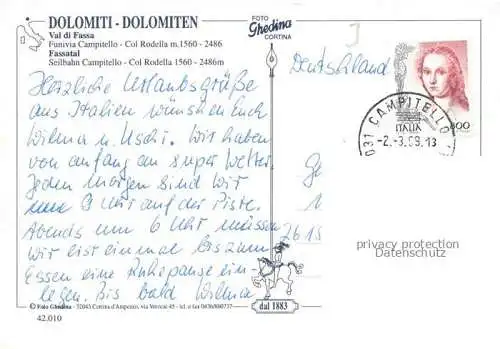 DOLOMITI - DOLOMITEN
Val di Fassa
Funivia Campitello - Col Rodella m.1560 - 2486
Fassatal
Seilbahn Campitello - Col Rodella 1560 - 2486m
FOTO
Ghedina
CORTINA
Deutschland
Herzliche Urlaubsgrüße
aus Italien wünschen Euch
Wilma u. Uschi. Wir haben
von anfang an super Wetter.
Jeden morgen sind wir
9 Uhr auf der Piste.
Abends um 6 Uhr müssen
wir erst einmal bis zum
Essen eine Ruhepause ein-
legen. Bis bald Wilma
CAMPITELLO
-2.-3.99.13
ITALIA
800
2615
privacy protection
Datenschutz
© Foto Ghedina - 32043 Cortina d'Ampezzo, via Verocai 45 - tel. e fax 0436/860737
dal 1883
42.010